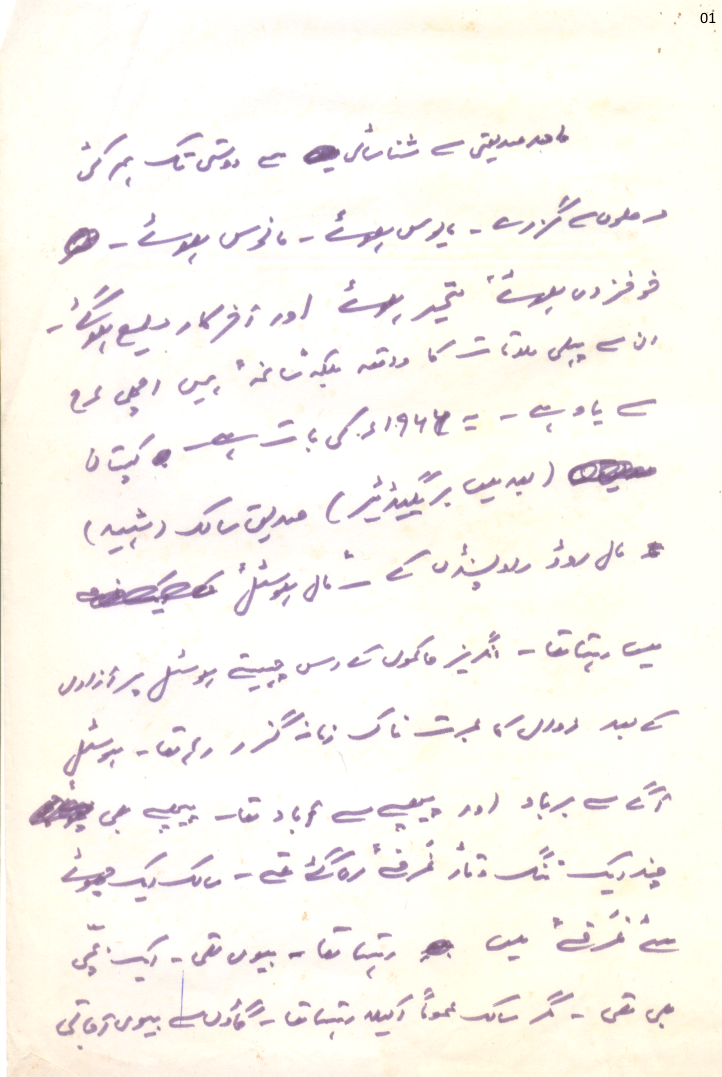 01
ماجد صدیقی سے شناسائی سے دوستی تک ہم کئی
مرحلوں سے گزرے۔ مایوس ہوئے۔ مانوس ہوئے۔
خوفزدہ ہوئے، متحیر ہوئے اور آخرکار مطیع ہو گئے۔
ان سے پہلی ملاقات کا واقعہ بلکہ "سانحہ" ہمیں اچھی طرح
سے یاد ہے۔ یہ ۱۹۶۴ء کی بات ہے کپتان
(بعد میں بریگیڈیئر) صدیق سالک (شہید)
مال روڈ راولپنڈی کے "مال ہوسٹل"
میں رہتا تھا۔ انگریز حاکموں کے اس چہیتے ہوسٹل پر آزادی
کے بعد زوال کا عبرت ناک زمانہ گزر رہا تھا۔ ہوسٹل
آگے سے برباد اور پیچھے سے آباد تھا۔ پیچھے بھی
چند ایک "تنگ و تار غرفے" رہ گئے تھے۔ سالک ایک چھوٹے
سے "غرفے" میں رہتا تھا۔ بیوی تھی۔ ایک بچی
بھی تھی۔ مگر سالک عموماً اکیلا رہتا تھا۔ گاؤں سے بیوی آ جاتی